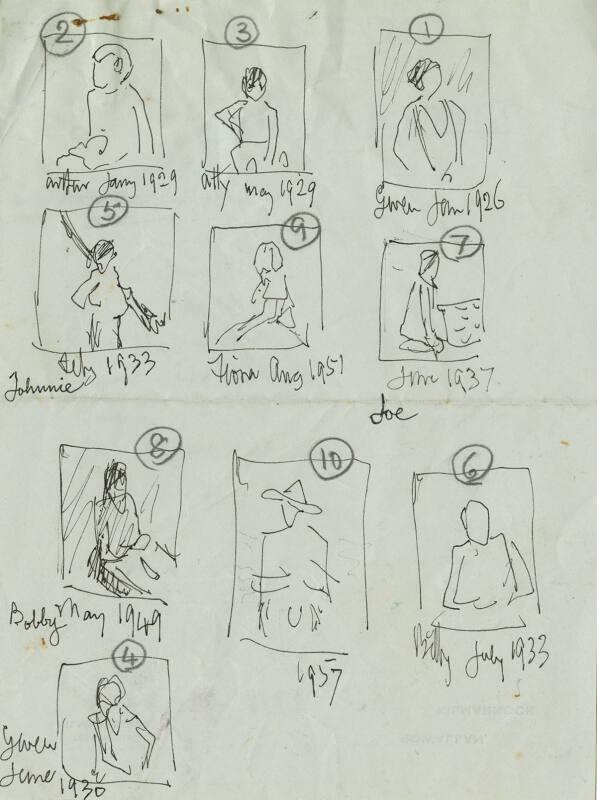 2
3
1
Arthur Jany 1929
Atty May 1929
Gwen Jan 1926
5
9
7
Feby 1933
Johnnie
Fiona Aug 1951
June 1937
Joe
8
10
6
Bobby May 1949
1957
Billy July 1933
4
Gwen
June
1930